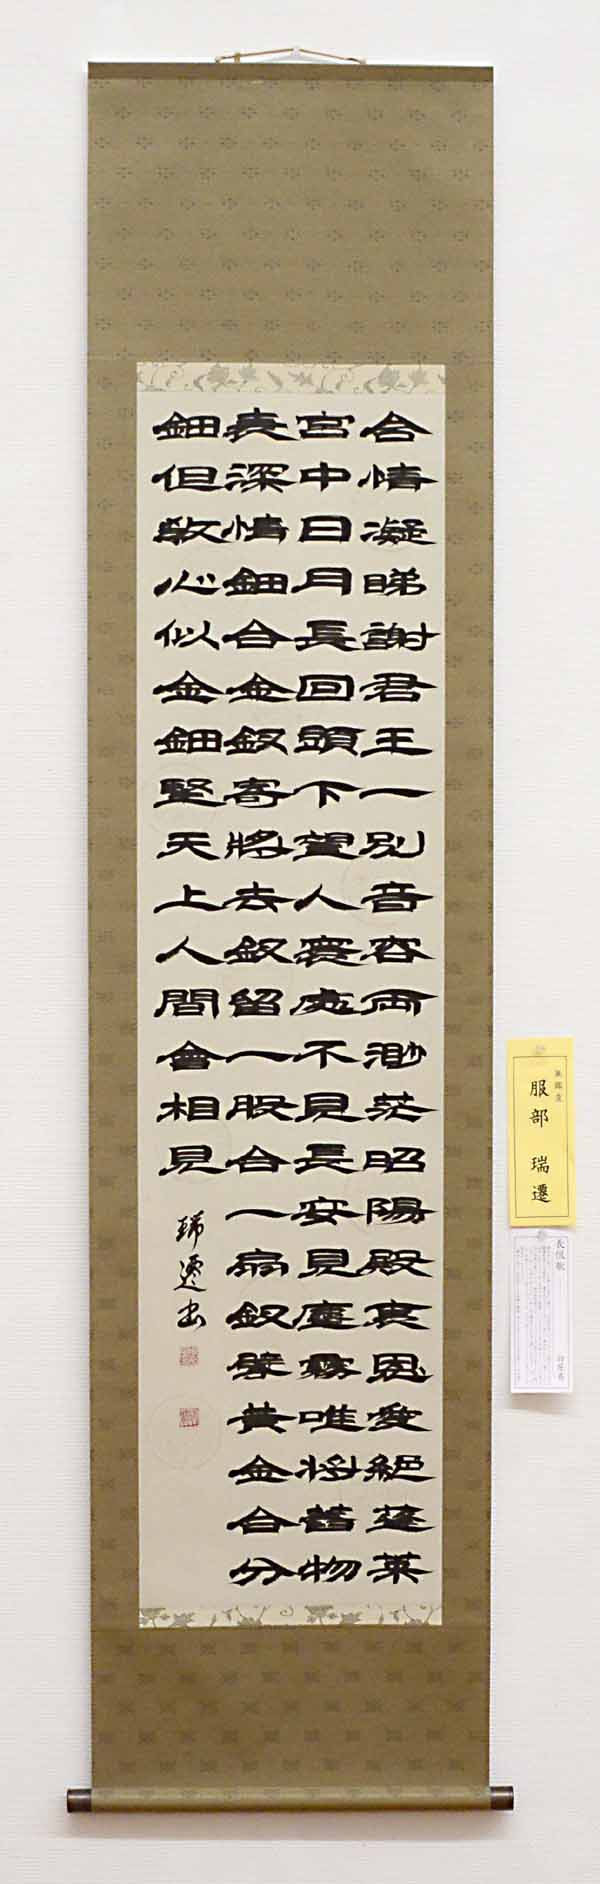 含情凝睇謝君王一別音容両渺茫昭陽殿裏恩愛絶蓬莱
宮中日月長回頭下望人寰處不見長安見塵霧唯将舊物
表深情鈿合金釵寄将去釵留一股合一扇釵擘黄金合分
鈿但教心似金鈿堅天上人間會相見
瑞遷書
服部 瑞遷
長恨歌
白居易